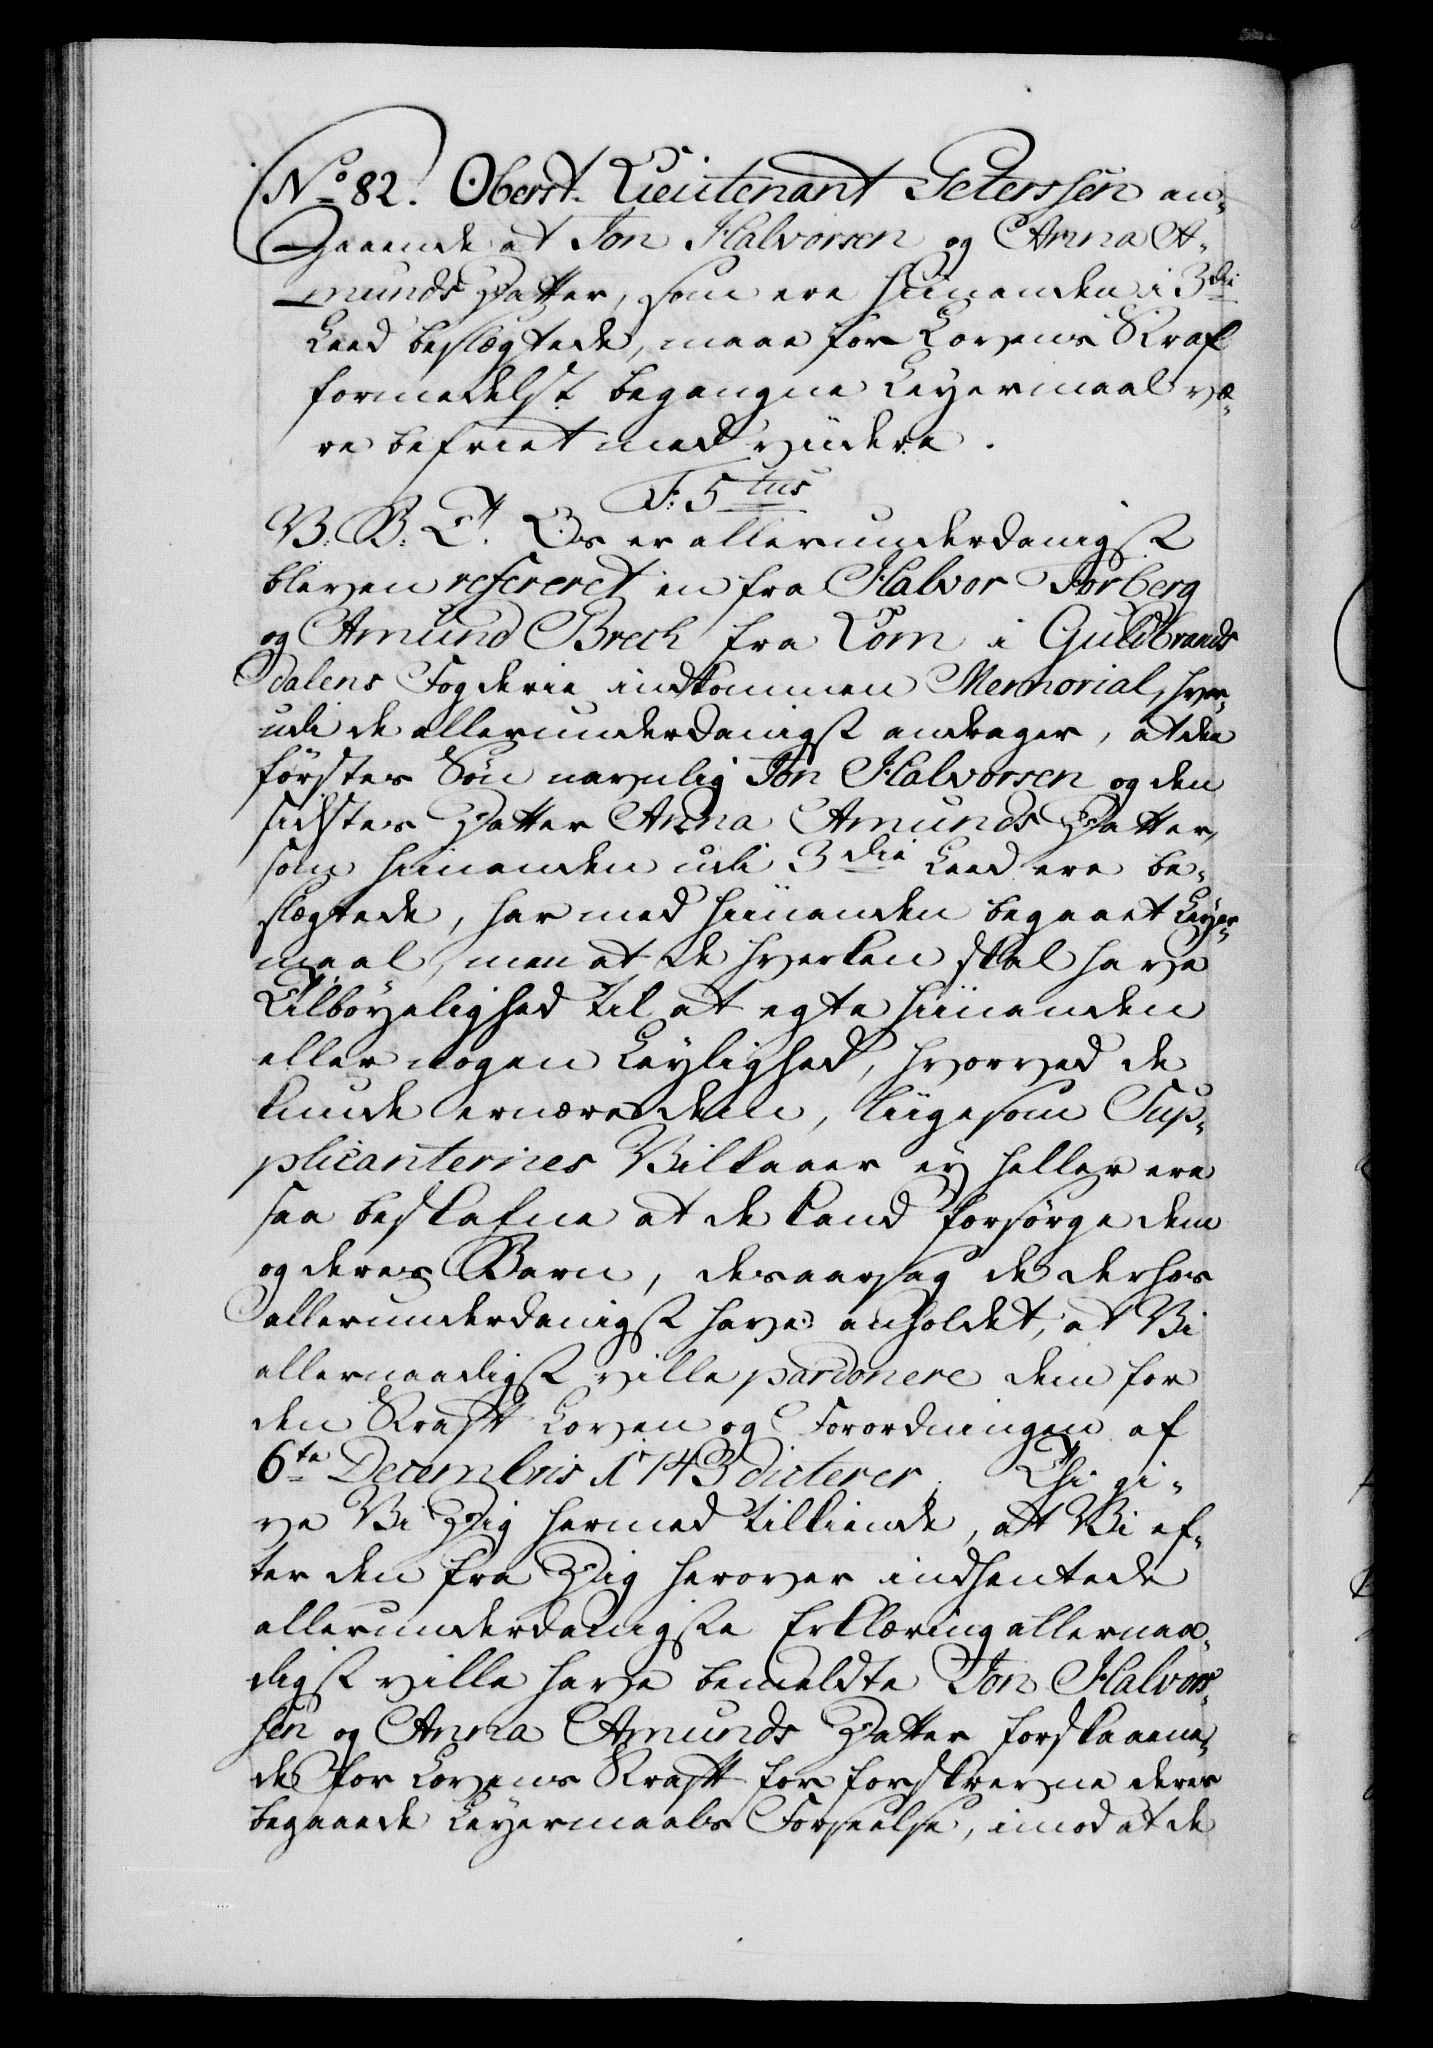 No 82. Oberst Lieutenant Peterssen an-
gaaende at Jon Halvorsen og Anna A-
munds Datter, som ere hinanden i 3die
Leed beslægtede, maae for Lovens Straf
formedelst begangne Leyermaal væ-
re befriet med viidere.
F: 5tus
V: B: T. Os er allerunderdanigst
bleven refereret en fra Halvor Forberg
og Amund Brech fra Lom i Guldbrands
dalens Fogderie indkommen Memorial, hvor-
udi de allerunderdanigst andrager, at den
förstes Sön navnlig Jon Halvorsen og den
sidstes Datter Anna Amunds Datter,
som hinanden udi 3die Leed ere be-
slægtede, har med hinanden begaaet Leyer-
maal, men at de hverken skal have
Tilböyelighed til at egte hinanden
eller nogen Leylighed, hvorved de
kunde ernære dem, liigesom Sup-
plicanternes Vilkaaer ey heller ere
saa beskafne at de kand forsörge dem
og deres Barn, desaarsag de derhos
allerunderdanigst have anholdet, at Vi
allernaadigst ville pardonere dem for
den Straff Loven og Forordningen af
6te Decembris 1743 dicterer. Thi gi-
ve Vi Dig hermed tilkiende, at Vi ef-
ter den fra Dig herover indhentede
allerunderdanigste Erklæring allernaa-
digst ville have bemeldte Jon Halvor-
sen og Anna Amunds Datter forskaane-
de for Lovens Straff for forskrevne deres
begaaede Leyermaals Forseelse, imod at de